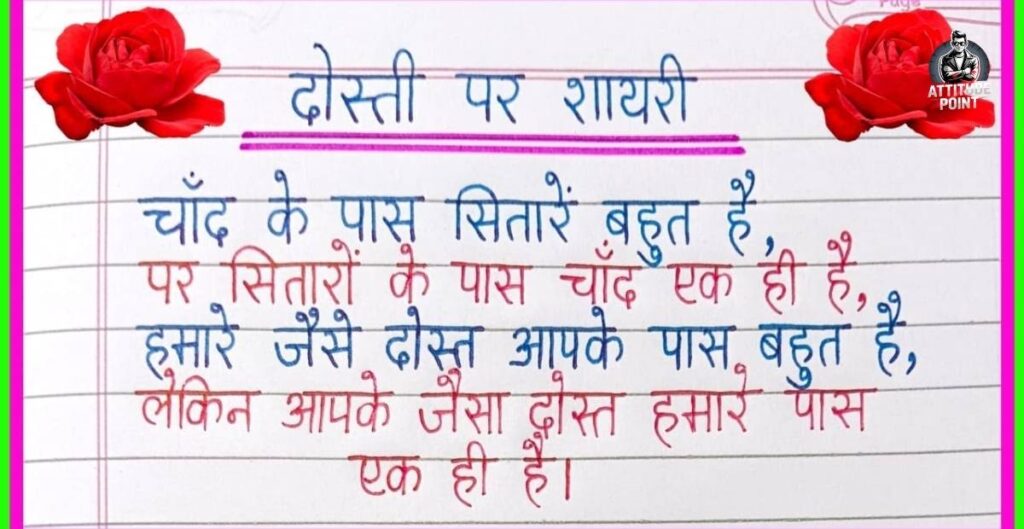 Page
ATTITUDE
POINT
दोस्ती पर शायरी
चाँद के पास सितारें बहुत है,
पर सितारों के पास चाँद एक ही है,
हमारे जैसे दोस्त आपके पास बहुत है,
लेकिन आपके जैसा दोस्त हमारे पास
एक ही है।